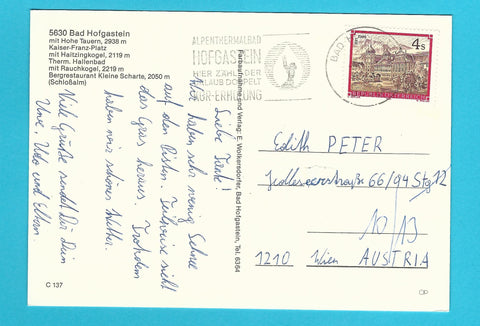 5630 Bad Hofgastein
mit Hohe Tauern, 2938 m
Kaiser-Franz-Platz
mit Haitzingkogel, 2119 m
Therm. Hallenbad
mit Rauchkogel, 2219 m
Bergrestaurant Kleine Scharte, 2050 m
(Schloßalm)
ALPENTHERMALBAD
HOFGASTEIN
HIER ZÄHLT DER
URLAUB DOPPELT
KUR-ERHOLUNG
BAD
4s
REPUBLIK ÖSTERREICH
Liebe Tant!
Wir haben sehr wenig Schnee
auf den Pisten. Teilweise sieht
das Gras heraus. Trotzdem
haben wir schönes Wetter.
Viele Grüße sendet Dir Dein
Uwe, Udo und Eltern.
Farbaufnahme und Verlag: E. Wolkersdorfer, Bad Hofgastein, Tel. 6364
Edith PETER
66/94 Stg 12
10/13
1210 Wien AUSTRIA
C 137